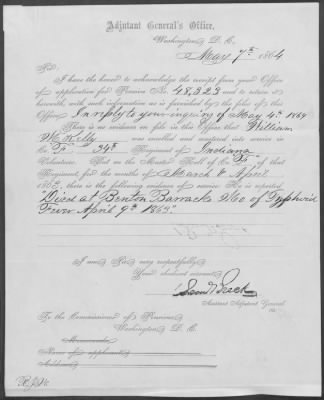 Adjutant General's Office,
Washington, D. C.,
May 7th, 1864
Sir:
I have the honor to acknowledge the receipt from your Office
of application for Pension No. 48,323 and to return it
herewith, with such information as is furnished by the files of this
Office. In reply to your inquiry of May 4th 1864
There is no evidence on file in this Office that William
Kelly was enrolled and mustered into service in
Co. 34th Regiment of Indiana
Volunteers. But on the Muster Roll of Co. of that
Regiment, for the months of March & April
1863, there is the following evidence of service: He is reported
"Died at Benton Barracks Mo of Typhoid
Fever April 9th 1863".
I am, Sir, very respectfully,
Your obedient servant,
Saml Breck
Assistant Adjutant General
To the Commissioner of Pensions,
Washington, D. C.
Memoranda:
Name of applicant,
Address,